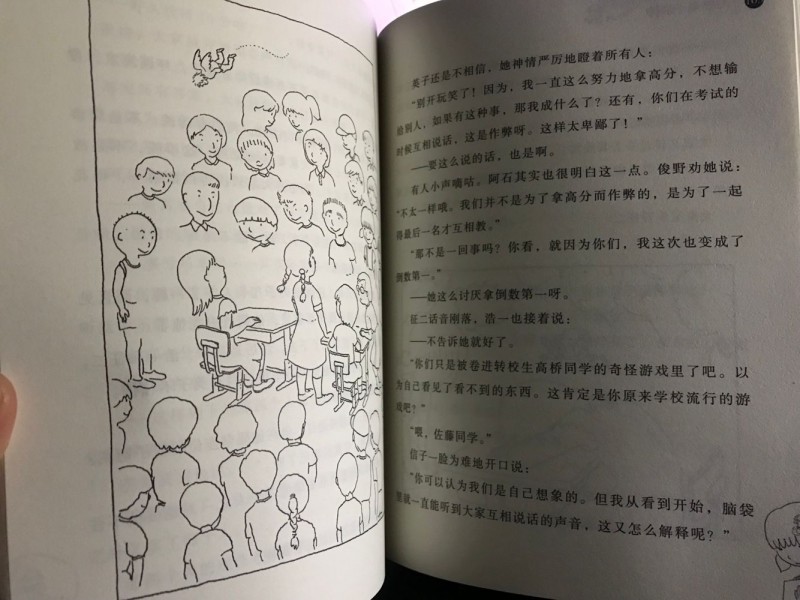 英子还是不相信，她神情严厉地瞪着所有人：
“别开玩笑了！因为，我一直这么努力地拿高分，不想输
给别人，如果有这种事，那我成什么了？还有，你们在考试的
时候互相说话，这是作弊呀。这样太卑鄙了！”
——要这么说的话，也是啊。
有人小声嘀咕。阿石其实也很明白这一点。俊野劝她说：
“不太一样哦。我们并不是为了拿高分而作弊的，是为了一起
得最后一名才互相教。”
“那不是一回事吗？你看，就因为你们，我这次也变成了
倒数第一。”
——她这么讨厌拿倒数第一呀。
征二话音刚落，浩一也接着说：
——不告诉她就好了。
“你们只是被卷进转校生高桥同学的奇怪游戏里了吧。以
为自己看见了看不到的东西。这肯定是你原来学校流行的游
戏吧？”
“喂，佐藤同学。”
信子一脸为难地开口说：
“你可以认为我们是自己想象的。但我从看到开始，脑袋
里就一直能听到大家互相说话的声音，这又怎么解释呢？”